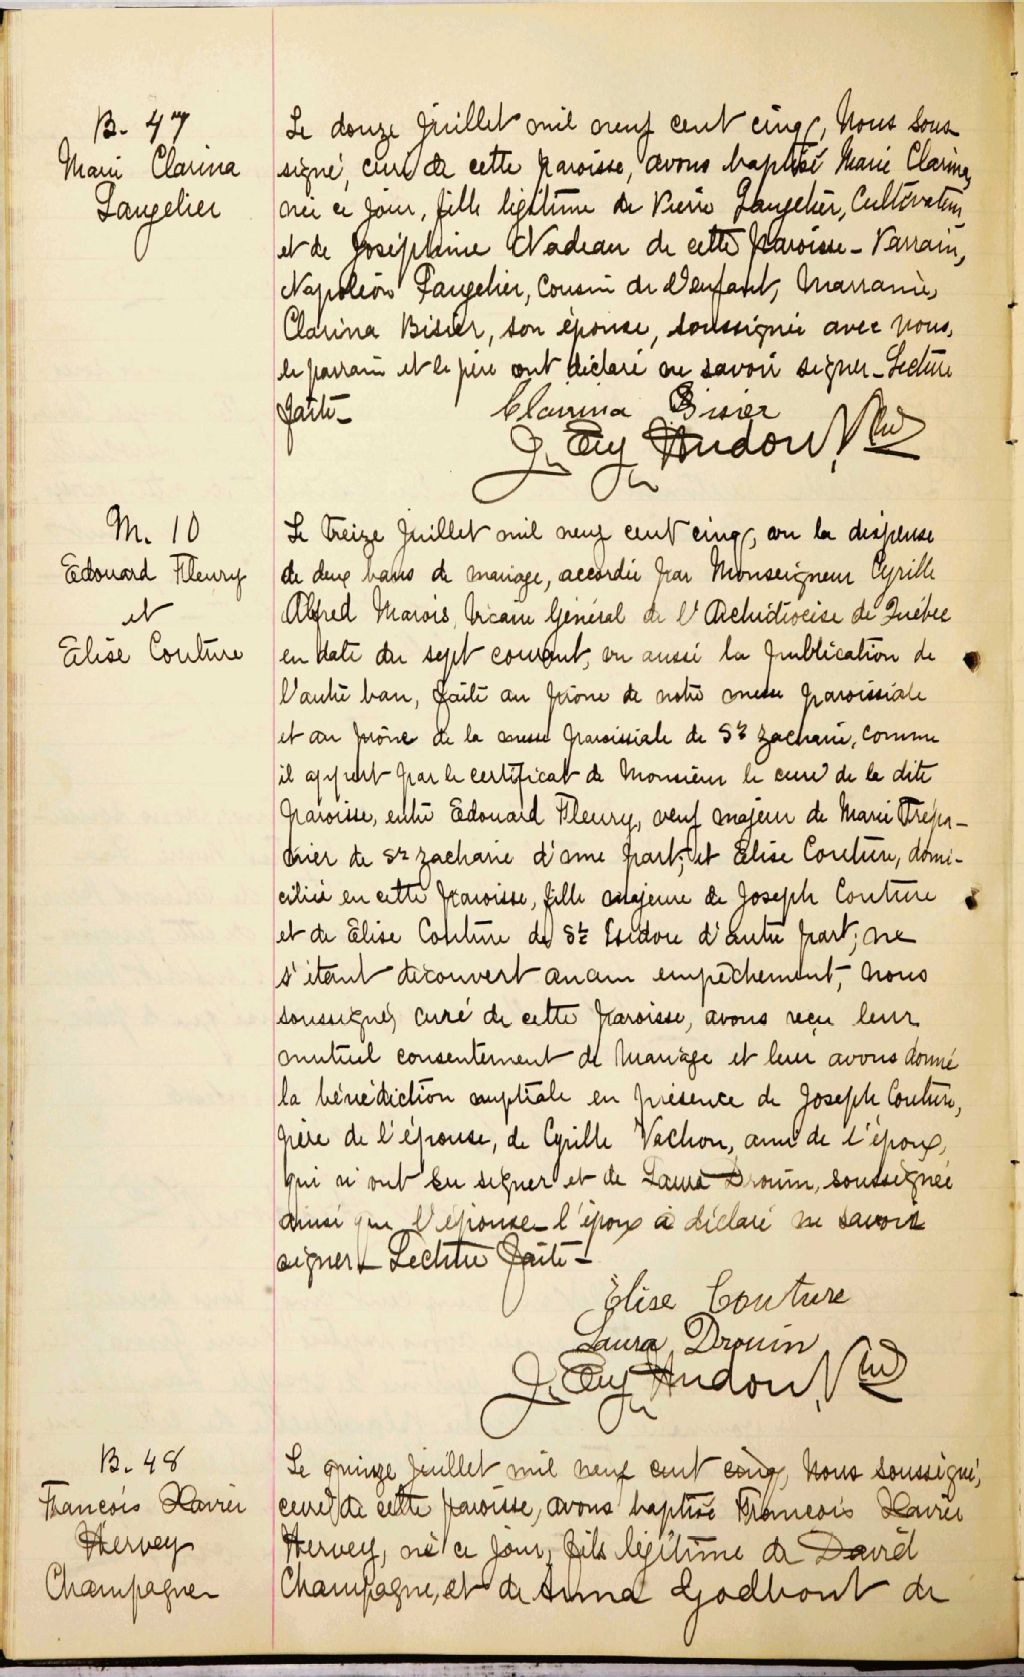 B. 47
Marie Clarina
Langelier
Le douze Juillet mil neuf cent cinq, Nous sous
signé, curé de cette paroisse, avons baptisé Marie Clarina,
née ce jour, fille légitime de Pierre Langelier, Cultivateur,
et de Joséphine Nadeau de cette paroisse - Parrain,
Napoléon Langelier, cousin de l'enfant, Marraine,
Clarina Bisier, son épouse, soussignée avec nous,
le parrain et le père ont déclaré ne savoir signer - Lecture
faite -
Clarina Bisier
J. Eug Audon
M. 10
Edouard Fleury
et
Elise Couture
Le treize Juillet mil neuf cent cinq, vu la dispense
de deux bans de mariage, accordée par Monseigneur Cyrille
Alfred Marois, Vicaire Général de l'Archidiocèse de Québec
en date du sept courant, vu aussi la publication de
l'autre ban, faite au prône de notre messe paroissiale
et au prône de la messe paroissiale de St Zacharie, comme
il appert par le certificat de Monsieur le curé de la dite
paroisse, entre Edouard Fleury, veuf majeur de Marie Trépa-
nier de St Zacharie d'une part; et Elise Couture, domi-
ciliée en cette paroisse, fille majeure de Joseph Couture
et de Elise Couture de St Isidore d'autre part; ne
s'étant découvert aucun empêchement, nous
soussigné, curé de cette paroisse, avons reçu leur
mutuel consentement de mariage et leur avons donné
la bénédiction nuptiale en présence de Joseph Couture,
père de l'épouse, de Cyrille Vachon, ami de l'époux,
qui n'ont su signer et de Laura Drouin, soussignée
ainsi que l'épouse - l'époux a déclaré ne savoir
signer - Lecture faite -
Elise Couture
Laura Drouin
J. Eug Audon
B. 48
François Xavier
Hervey
Champagne
Le quinze Juillet mil neuf cent cinq, Nous soussigné,
curé de cette paroisse, avons baptisé François Xavier
Hervey, né ce jour, fils légitime de David
Champagne, et de Anna Godbout de